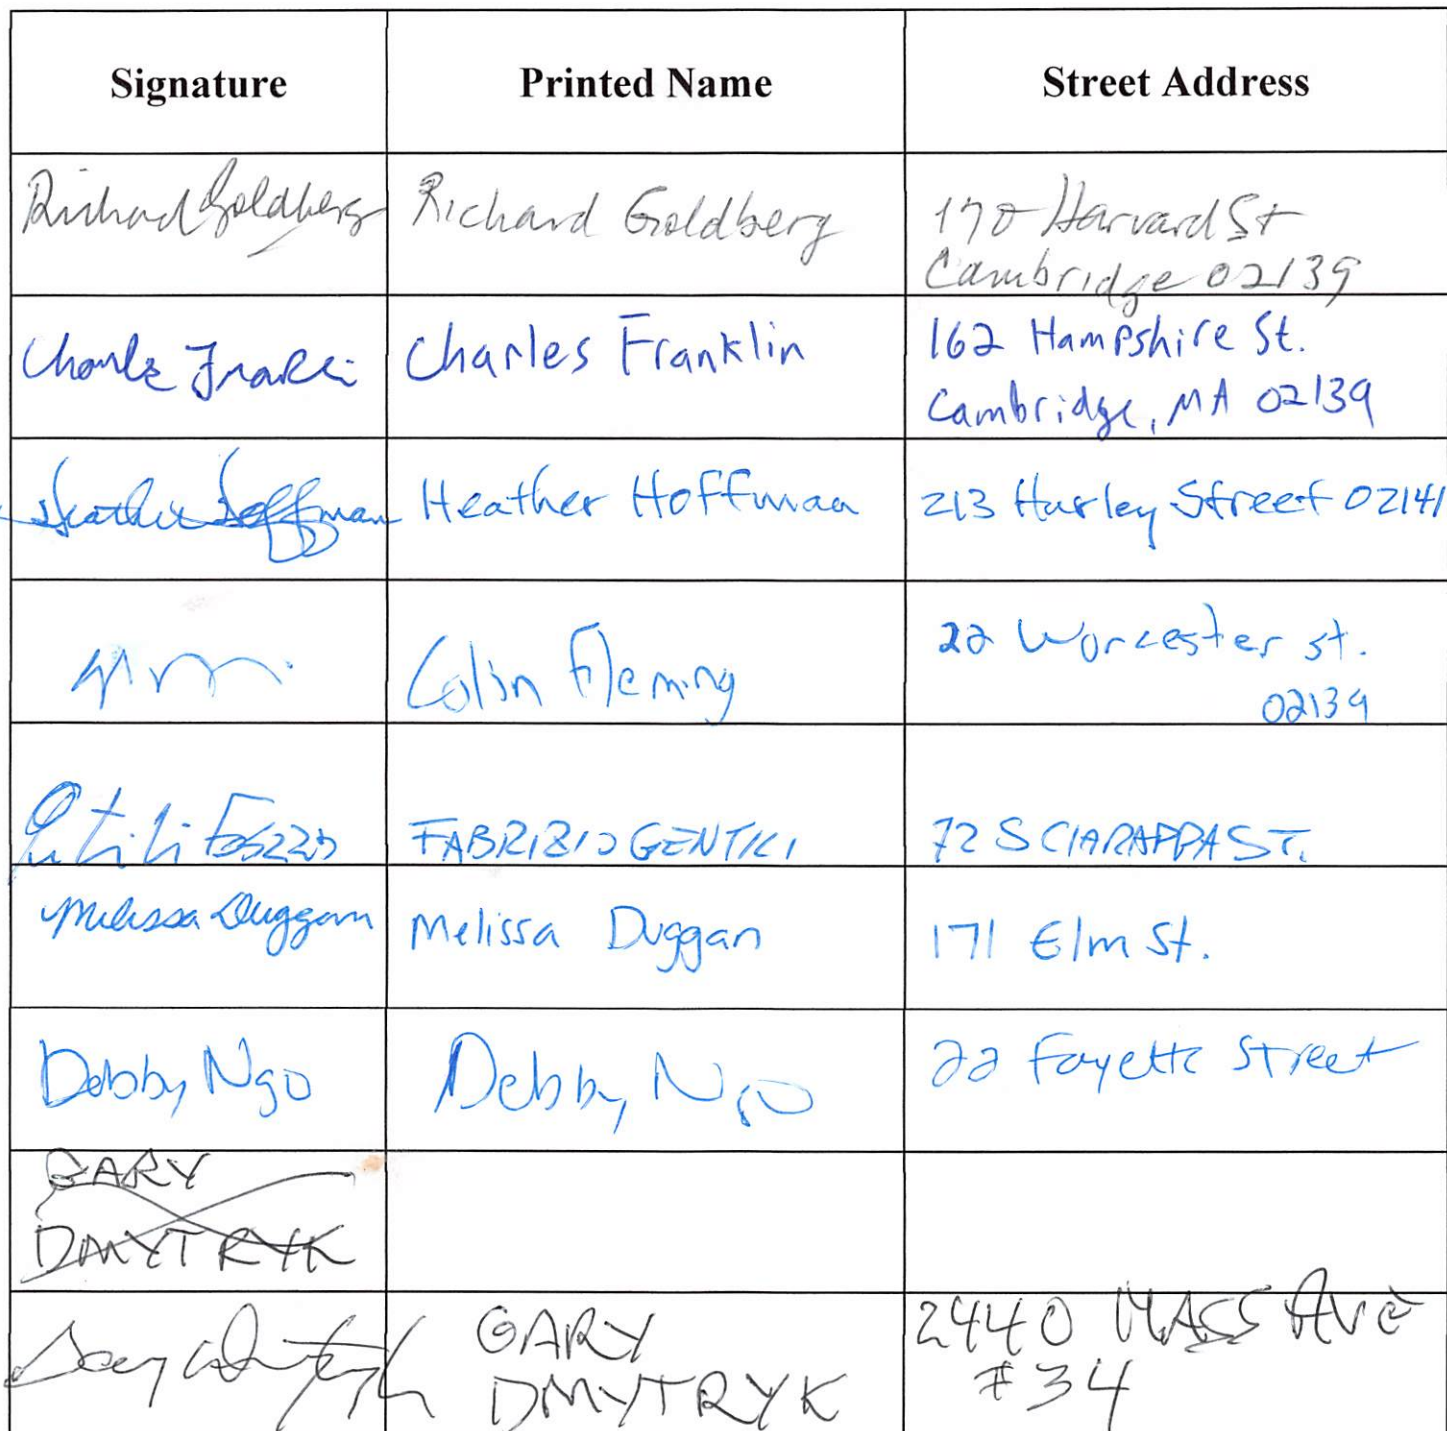 Signature Printed Name Street Address
Richard Goldberg Richard Goldberg 170 Harvard St
Cambridge 02139
Charles Franklin 162 Hampshire St.
Cambridge, MA 02139
Heather Hoffman Heather Hoffman 213 Hurley Street 02141
Colin Fleming 22 Worcester St.
02139
FABRIZIO GENTILI 72 SCIARAPPA ST.
Melissa Duggan Melissa Duggan 171 Elm St.
Debby Ngo Debby Ngo 22 Fayette Street
GARY
DMYTRYK
GARY 2440 MASS AVE
DMYTRYK #34